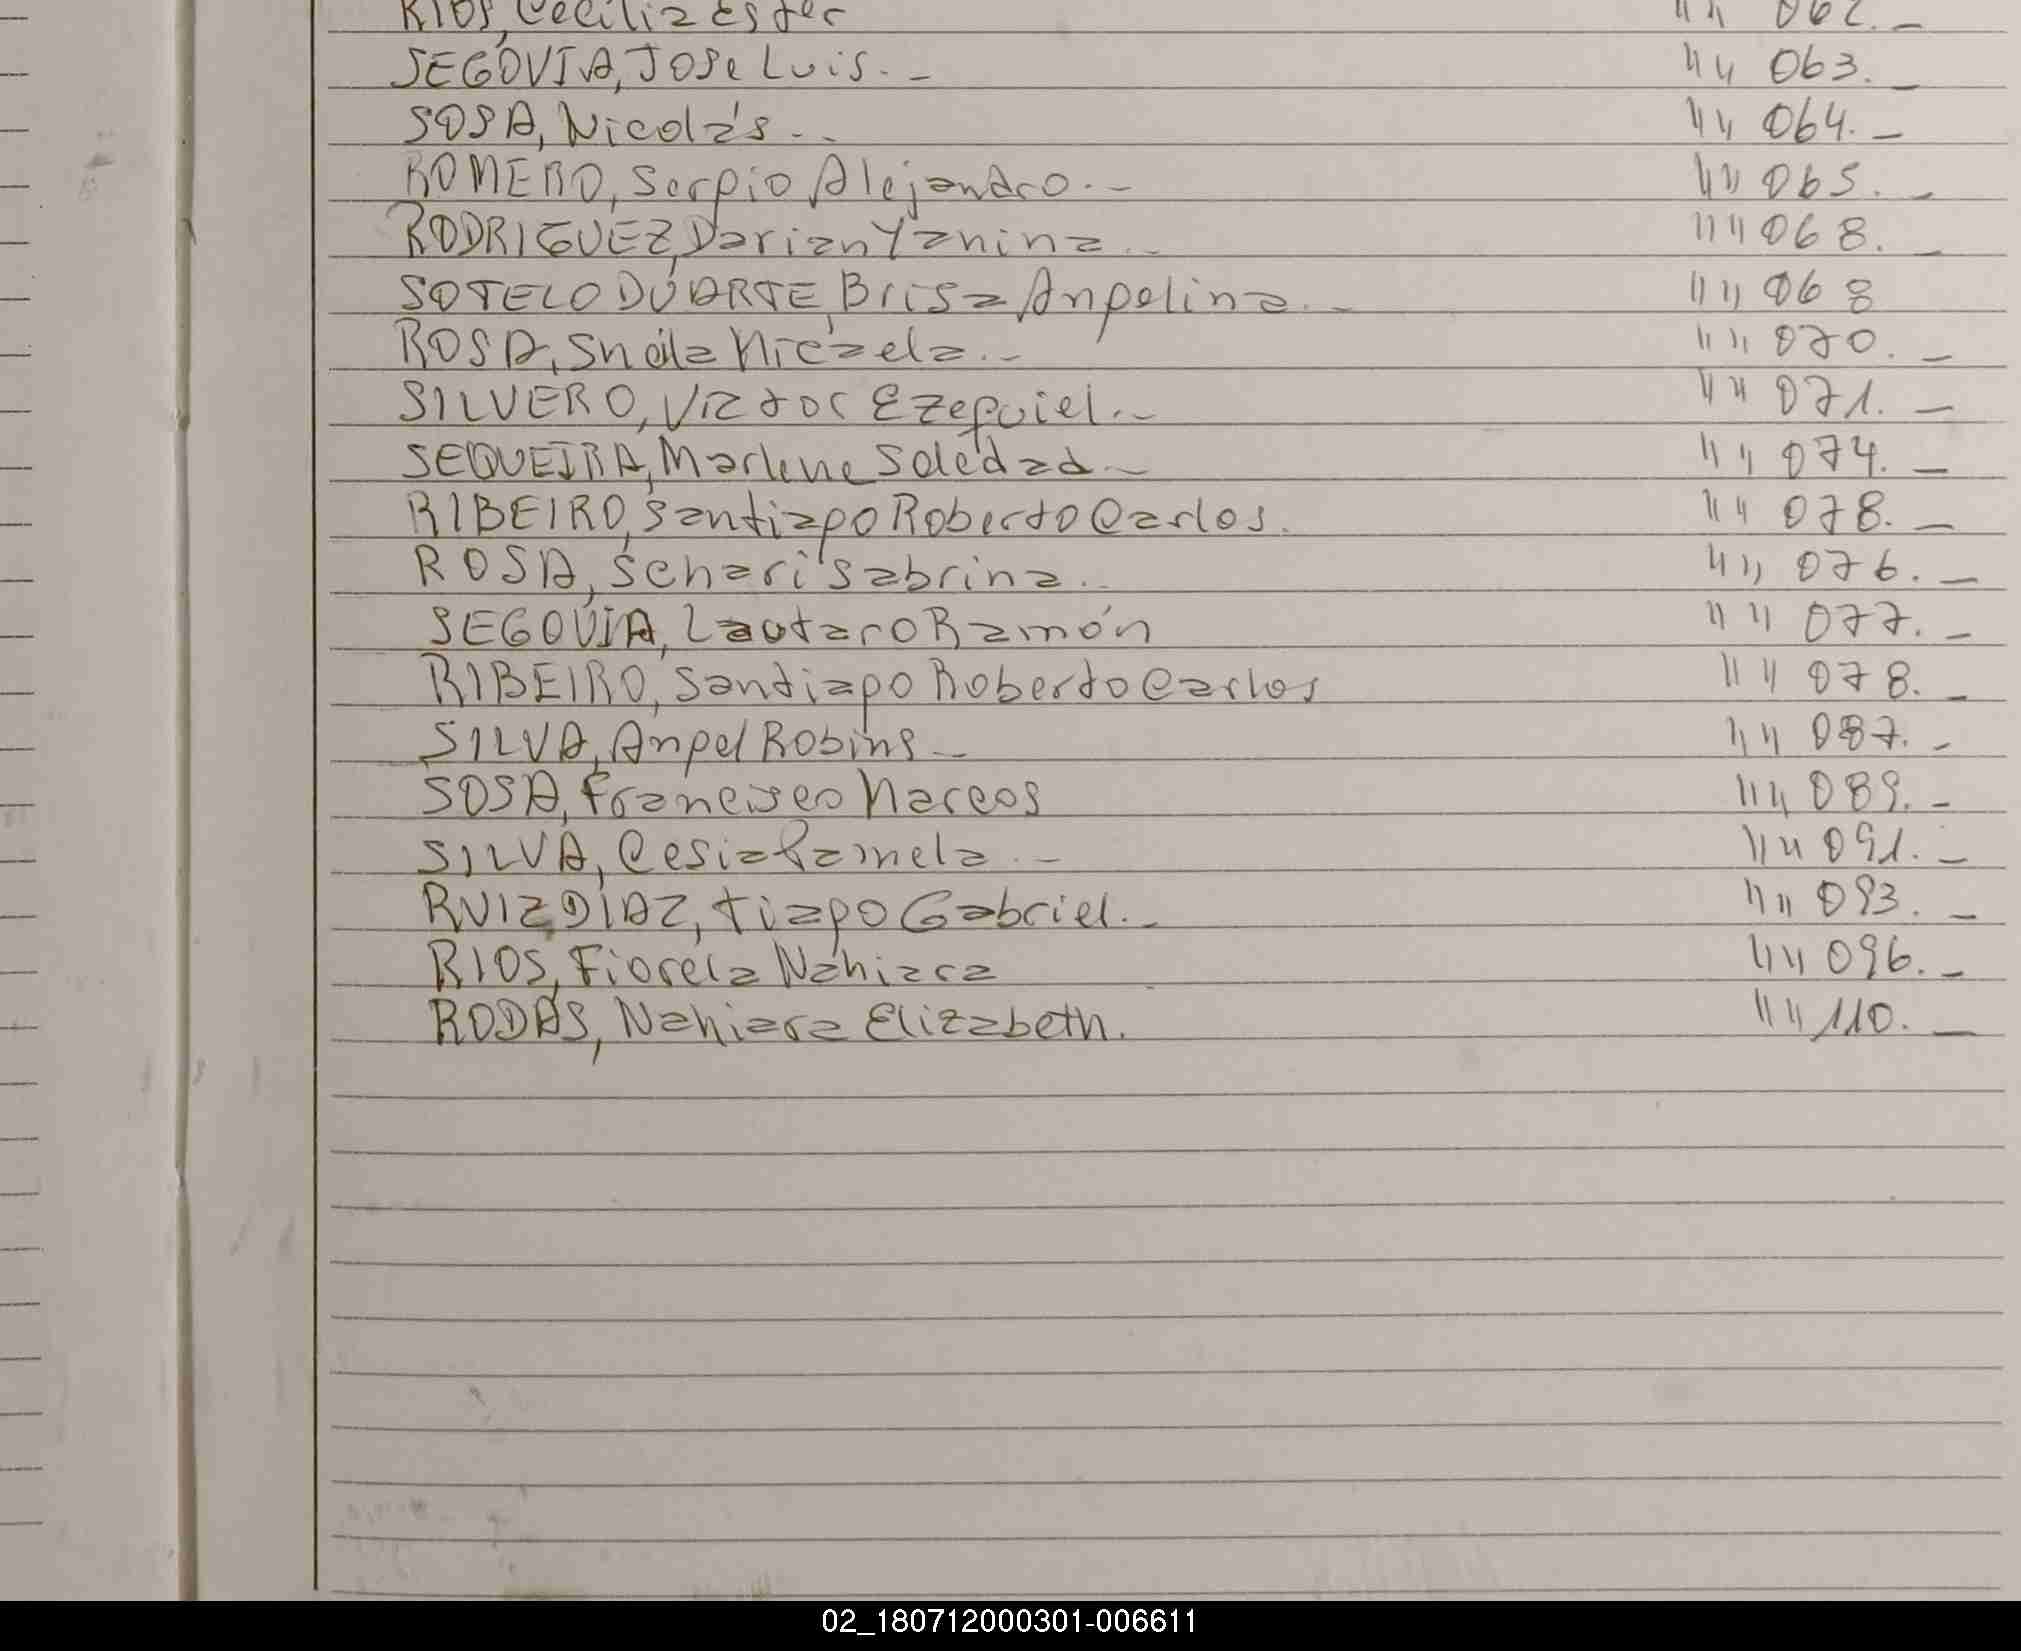 RIOS, Cecilia Ester " " 062. _
SEGOVIA, Jose Luis. _ " " 063. _
SOSA, Nicolás. _ " " 064. _
ROMERO, Sergio Alejandro. _ " " 065. _
RODRIGUEZ, Darian Yanina. _ " " 068. _
SOTELO DUARTE, Brisa Angelina. _ " " 068
ROSA, Sheila Micaela. _ " " 070. _
SILVERO, Victor Ezequiel. _ " " 071. _
SEQUEIRA, Marlene Soledad. _ " " 074. _
RIBEIRO, Santiago Roberto Carlos. " " 078. _
ROSA, Scharif Sabrina. _ " " 076. _
SEGOVIA, Lautaro Ramón " " 077. _
RIBEIRO, Santiago Roberto Carlos " " 078. _
SILVA, Angel Robins _ " " 087. _
SOSA, Francisco Marcos " " 089. _
SILVA, Cesia Pamela. _ " " 091. _
RUIZ DIAZ, Tiago Gabriel. _ " " 093. _
RIOS, Fiorela Nahiara " " 096. _
RODAS, Nahiara Elizabeth. " " 110. _
02_180712000301-006611